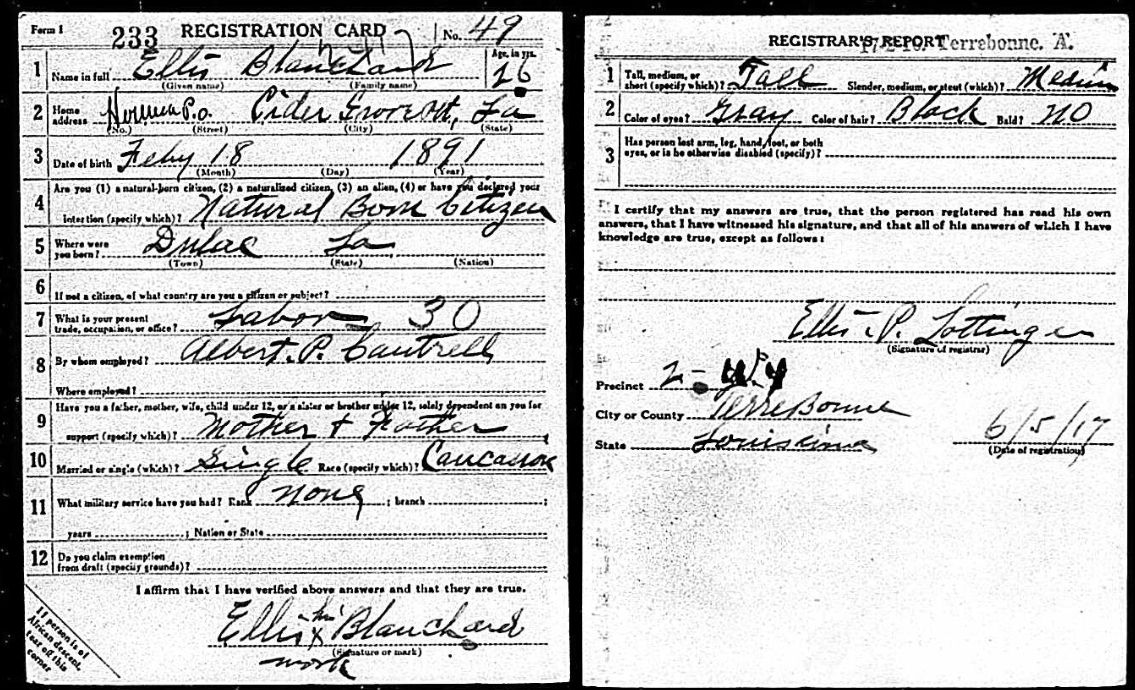 Form 1
233 REGISTRATION CARD No. 49
1 Name in full Ellis Blanchard Age, in yrs. 26
(Given name) (Family name)
2 Home address P.o. Cider Grove La
(No.) (Street) (City) (State)
3 Date of birth Feby 18 1891
(Month) (Day) (Year)
4 Are you (1) a natural-born citizen, (2) a naturalized citizen, (3) an alien, (4) or have you declared your
intention (specify which)? Natural Born Citizen
5 Where were you born? Dulac La
(Town) (State) (Nation)
6 If not a citizen, of what country are you a citizen or subject?
7 What is your present trade, occupation, or office? Labor 30
8 By whom employed? Albert. P. Cantrell
Where employed?
9 Have you a father, mother, wife, child under 12, or a sister or brother under 12, solely dependent on you for
support (specify which)? Mother & Father
10 Married or single (which)? Single Race (specify which)? Caucasion
11 What military service have you had? Rank none ; branch ;
years ; Nation or State
12 Do you claim exemption from draft (specify grounds)?
I affirm that I have verified above answers and that they are true.
Ellis his x Blanchard
(Signature or mark)
mark
If person is of
African descent,
tear off this
corner
REGISTRAR'S REPORT Terrebonne. A.
1 Tall, medium, or short (specify which)? Tall Slender, medium, or stout (which)? Medium
2 Color of eyes? Gray Color of hair? Black Bald? NO
3 Has person lost arm, leg, hand, foot, or both
eyes, or is he otherwise disabled (specify)?
I certify that my answers are true, that the person registered has read his own
answers, that I have witnessed his signature, and that all of his answers of which I have
knowledge are true, except as follows:
Ellis. P. Lottinger
(Signature of registrar)
Precinct 2-
City or County TerreBonne
State Louisiana 6/5/17
(Date of registration)